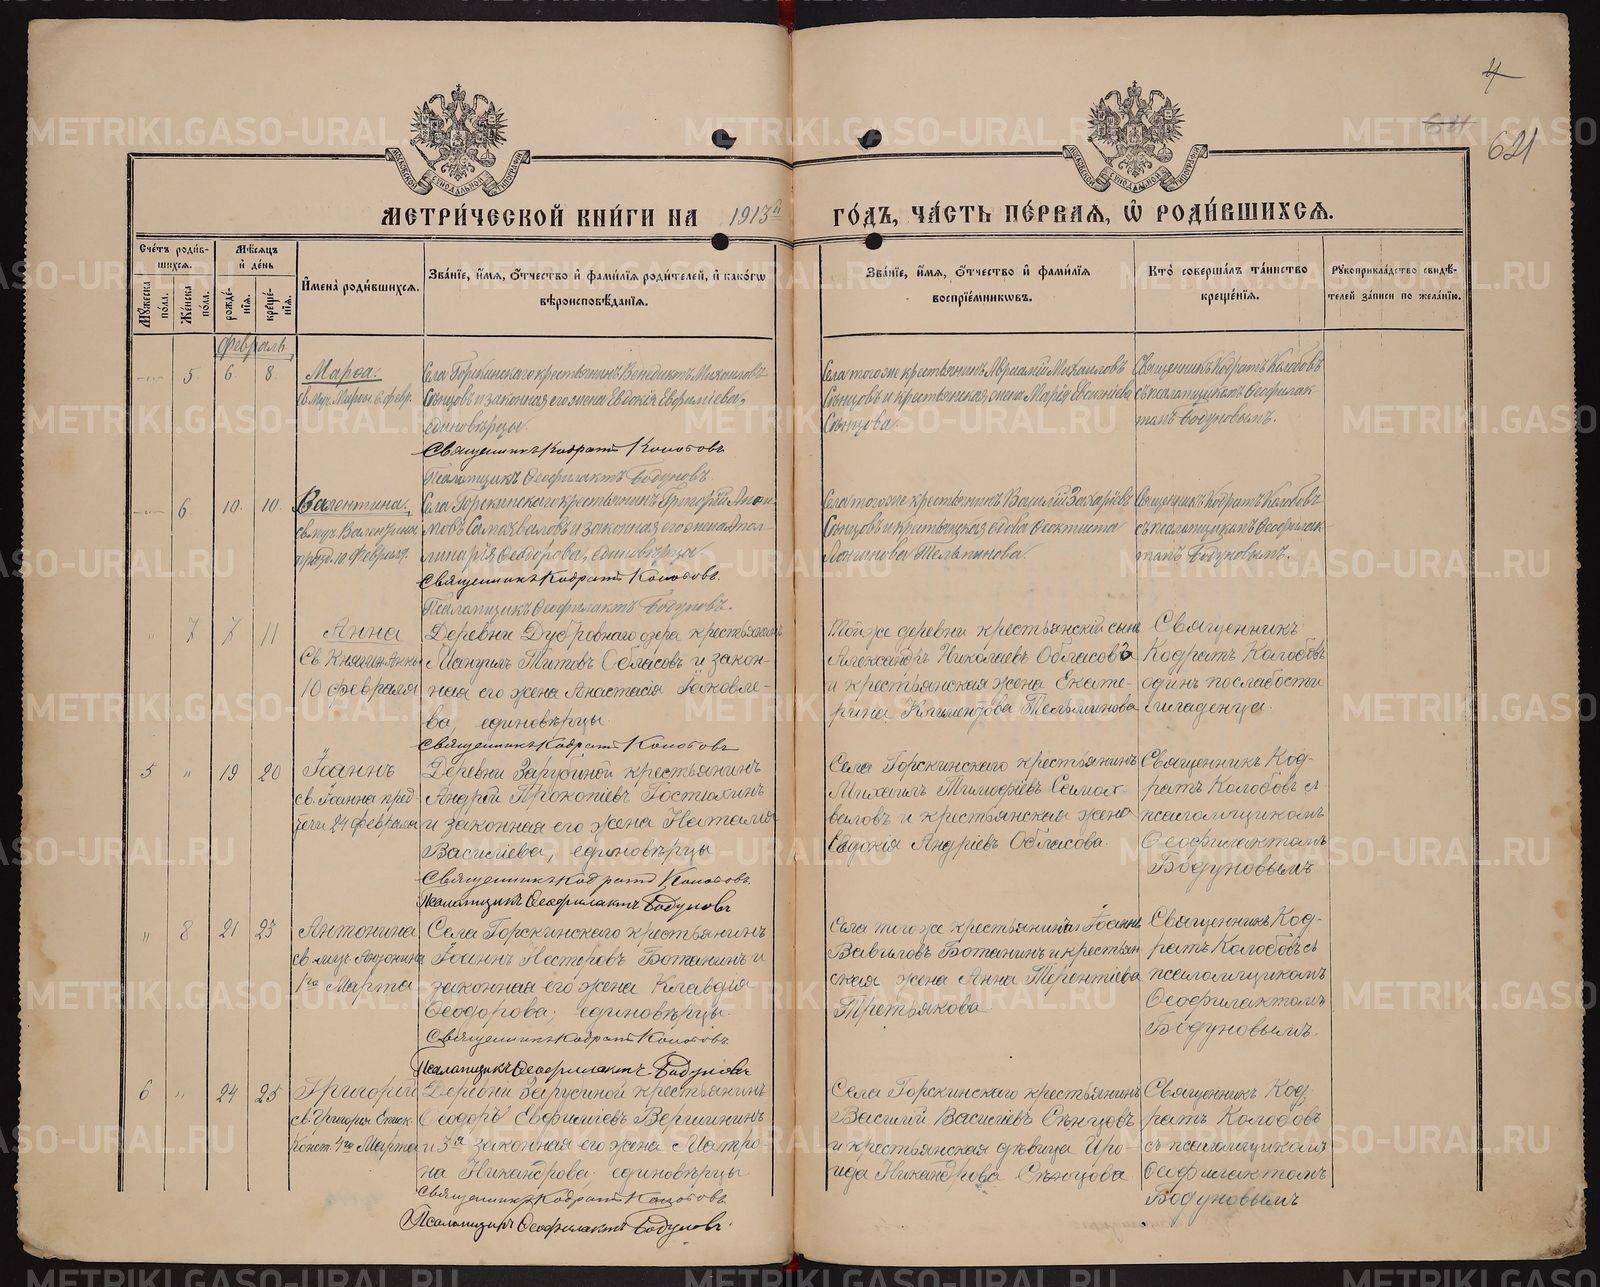 4
621
621
МОСКОВСКОЙ СѴНОДАЛЬНОЙ ТИПОГРАФІИ
МОСКОВСКОЙ СѴНОДАЛЬНОЙ ТИПОГРАФІИ
МЕТРИ́ЧЕСКОЙ КНИ́ГИ НА 1913й ГО́ДЪ, ЧА́СТЬ ПЕ́РВАЯ, Ѽ РОДИ́ВШИХСѦ.
Сче́тъ роди́в-
шихсѧ.
Мꙋ́жеска
по́ла.
Же́нска
по́ла.
Мѣ́сѧцъ
и҆ де́нь
рожде́-
нїѧ.
креще́-
нїѧ.
И҆мена̀ роди́вшихсѧ.
Зва́нїе, и҆́мѧ, ѻ҆́тчество и҆ фами́лїѧ роди́телей, и҆ како́гѡ
вѣроисповѣ́данїѧ.
Зва́нїе, и҆́мѧ, ѻ҆́тчество и҆ фами́лїѧ
воспрїе́мникѡвъ.
Кто̀ соверша́лъ та́инство
креще́нїѧ.
Рꙋкоприкла́дство свидѣ́-
телей за́писи по жела́нїю.
Февраль
5 6 8
Марѳа.
св. муч. Марѳы 6 февр.
Села Горскинскаго крестьянинъ Венедиктъ Михаиловъ
Сѣнцовъ и законная его жена Евдокія Евѳиміева,
единовѣрцы.
Священникъ Кодратъ Колобовъ
Псаломщикъ Ѳеофилактъ Бодуновъ
Села того же крестьянинъ Авраамій Михаиловъ
Сѣнцовъ и крестьянская жена Марія
Сѣнцова.
Священникъ Кодратъ Колобовъ
съ псаломщикомъ Ѳеофилак-
томъ Бодуновымъ.
6 10 10
Валентина.
св. муч. Валентины
празд. 10 Февраля.
Села Горскинскаго крестьянинъ Григорій
Самохваловъ и законная его жена Апол-
линарія Ѳеодорова, единовѣрцы
Священникъ Кодратъ Колобовъ.
Псаломщикъ Ѳеофилактъ Бодуновъ.
Села того же крестьянинъ Василій Захаріевъ
Сѣнцовъ и крестьянская вдова Ѳеоктиста
Логинова Тельминова.
Священникъ Кодратъ Колобовъ
съ псаломщикомъ Ѳеофилак-
томъ Бодуновымъ.
" 7 7 11
Анна
Св. Княгин Анны
10 февраля
Деревни Дубровнаго озера крестьянинъ
Мануилъ Титовъ Обласовъ и закон-
ная его жена Анастасія Іаковле-
ва, единовѣрцы
Священникъ Кодратъ Колобовъ
Той же деревни крестьянскій сынъ
Александръ Николаевъ Обласовъ
и крестьянская жена Екате-
рина Климентова Тельминова
Священникъ
Кодратъ Колобовъ
одинъ по слабости
младенца.
5 " 19 20
Іоаннъ
св. Іоанна пред-
течи 24 февраля
Деревни Зарубиной крестьянинъ
Андрей Прокопіевъ Гостюхинъ
и законная его жена Наталія
Василіева, единовѣрцы
Священникъ Кодратъ Колобовъ.
Псаломщикъ Ѳеофилактъ Бодуновъ
Села Горскинскаго крестьянинъ
Михаилъ Тимоѳіевъ Самох-
валовъ и крестьянская жена
Евдокія Андріевъ Обласова.
Священникъ Код-
ратъ Колобовъ съ
псаломщикомъ
Ѳеофилактомъ
Бодуновымъ
" 8 21 23
Антонина
св. муч. Антонина
1го Марта
Села Горскинскаго крестьянинъ
Іоаннъ Нестеровъ Ботанинъ и
законная его жена Клавдія
Ѳеодорова; единовѣрцы.
Священникъ Кодратъ Колобовъ
Псаломщикъ Ѳеофилактъ Бодуновъ
Села того же крестьянинъ Іоаннъ
Вавиловъ Ботанинъ и крестьян
ская жена Анна Терентіева
Третьякова
Священникъ Код-
ратъ Колобовъ съ
псаломщикомъ
Ѳеофилактомъ
Бодуновымъ.
6 " 24 25
Григорій
св. Григорія Еписк.
Конст. 4го Марта
Деревни Зарубиной крестьянинъ
Ѳеодоръ Евфиміевъ Вершининъ
и 3я законная его жена Матро-
на Никандрова; единовѣрцы
Священникъ Кодратъ Колобовъ.
Псаломщикъ Ѳеофилактъ Бодуновъ.
Села Горскинскаго крестьянинъ
Василій Василіевъ Сѣнцовъ
и крестьянская дѣвица Иро-
ида Никандрова Сѣнцова
Священникъ Код-
ратъ Колобовъ
съ псаломщикомъ
Ѳеофилактомъ
Бодуновымъ
METRIKI.GASO-URAL.RU